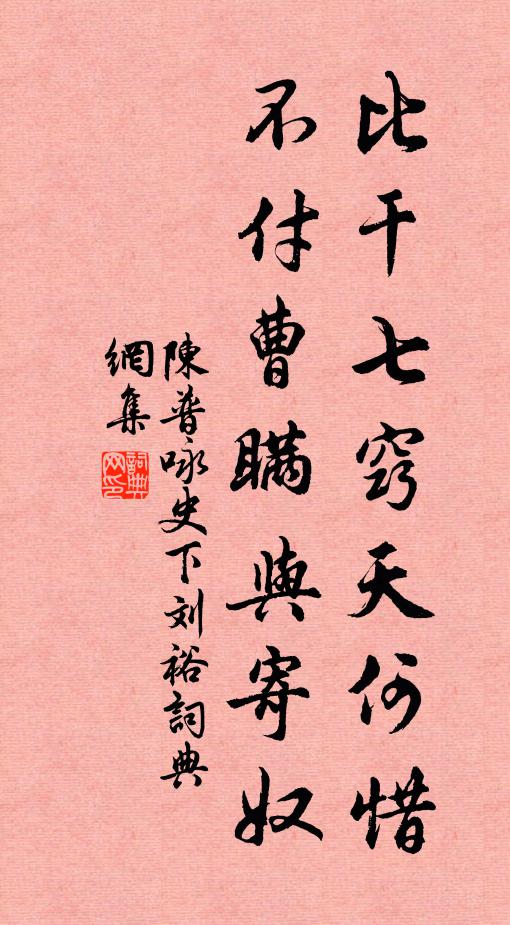 比干七窍天何惜
不付曹瞞與寄奴
陳普咏史下刘裕詞典
網集
詞典
网印